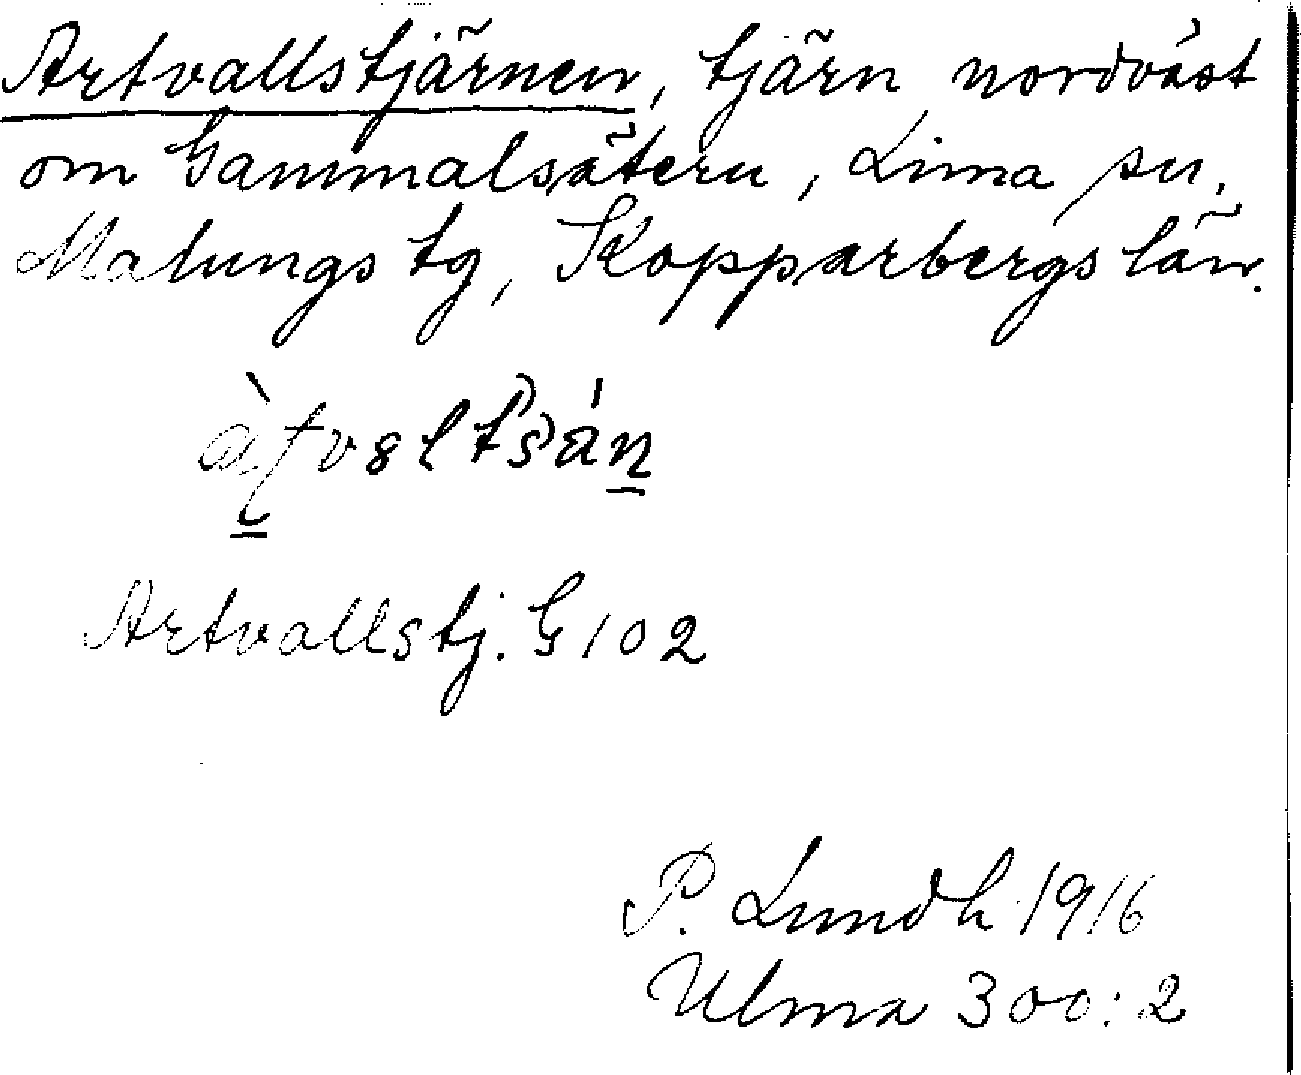 Artvallstjärnen, tjärn nordväst
om Gammalsätern, Lima sn,
Malungs tg, Kopparbergs län.
Artvallstj. G 102
P. Lundh 1916
Ulma 300:2